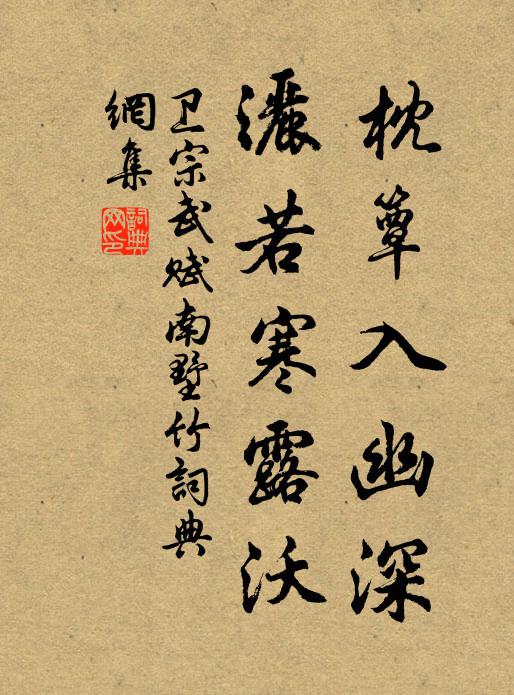 枕簟入幽深
灑若寒露沃
卫宗武赋南墅竹詞典
網集
詞典
网印